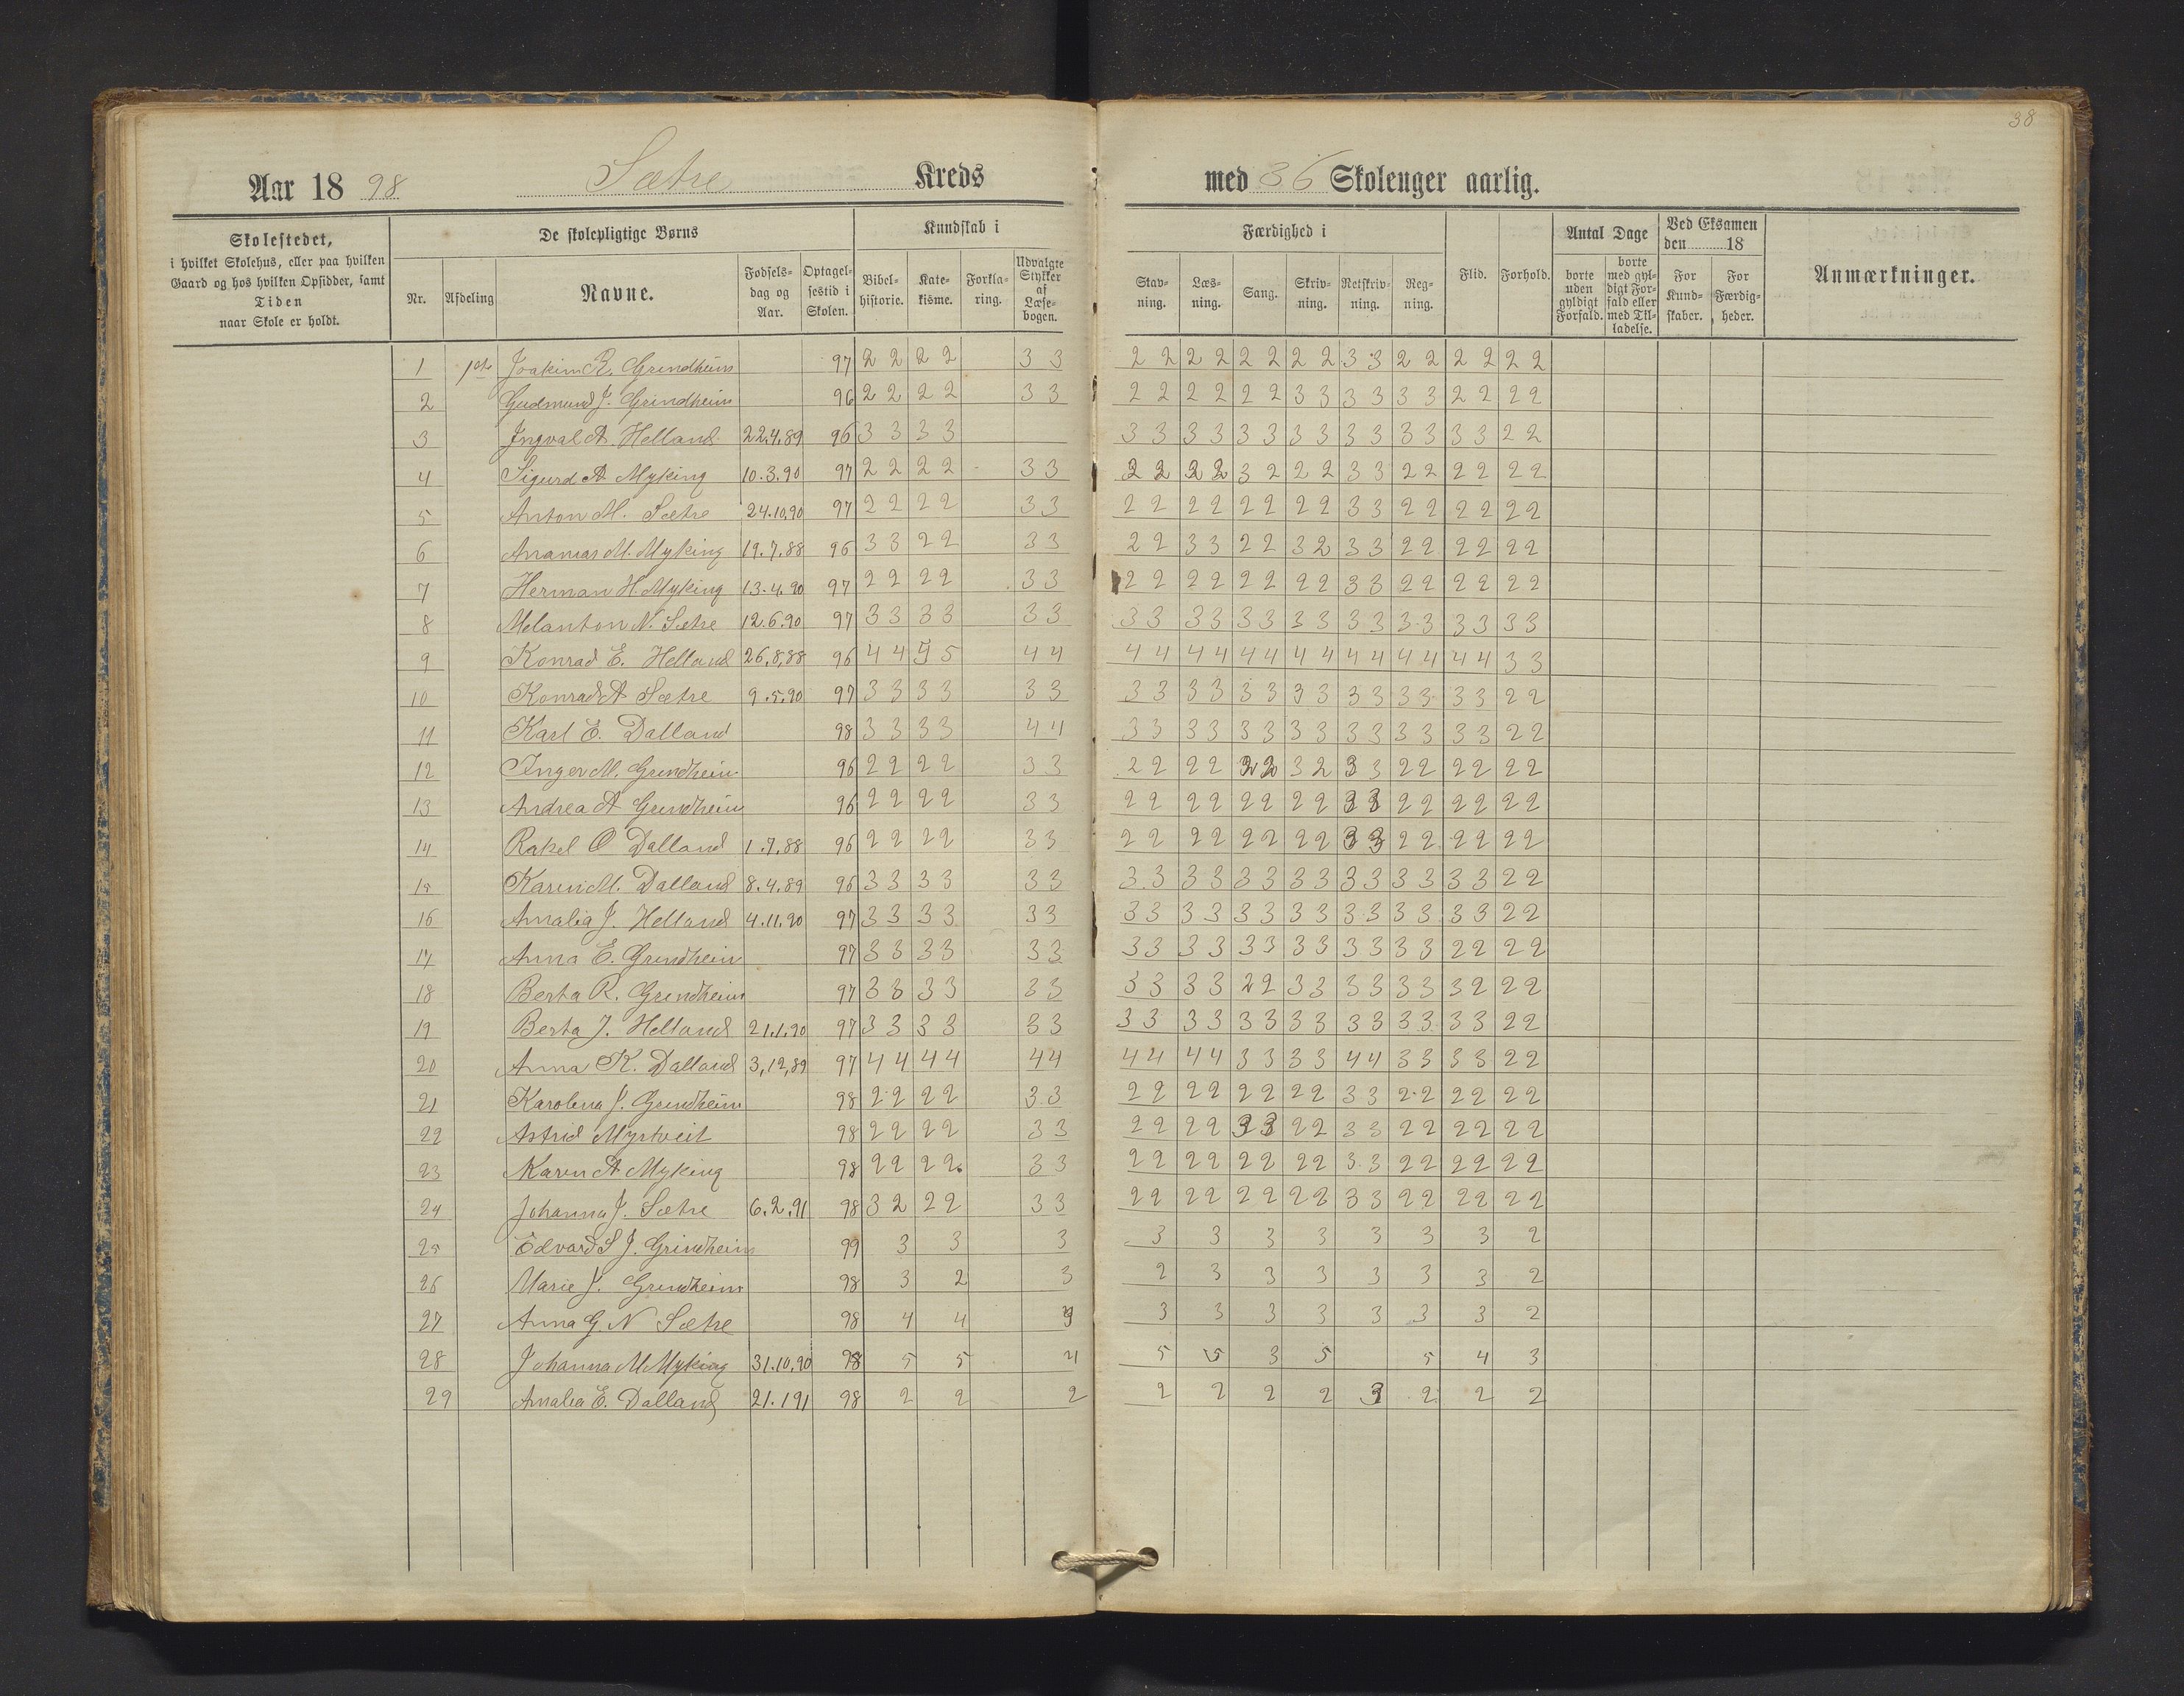 38
Aar 1898 Sætre Kreds med 36 Skoleuger aarlig.
Skolestedet, i hvilket Skolehus, eller paa hvilken Gaard og hos hvilken Opsidder, samt Tiden naar Skole er holdt.
De skolepligtige Børns
Nr. Afdeling Navne. Fødsels-dag og Aar. Optagel-sestid i Skolen.
Kundskab i
Bibel-historie. Kate-kisme. Forkla-ring. Udvalgte Stykker af Læse-bogen.
Færdighed i
Stav-ning. Læs-ning. Sang. Skriv-ning. Retskriv-ning. Reg-ning.
Flid. Forhold.
Antal Dage
borte uden gyldigt Forfald. borte med gyl-digt For-fald eller med Til-ladelse.
Ved Eksamen den 18
For Kund-skaber. For Færdig-heder.
Anmærkninger.
1 1ste Joakim R. Grindheim 97 2 2 2 2 3 3 2 2 2 2 2 2 2 2 3 3 2 2 2 2 2 2
2 Gudmund J. Grindheim 96 2 2 2 2 3 3 2 2 2 2 2 2 3 3 3 3 3 3 2 2 2 2
3 Ingval A. Helland 22.4.89 96 3 3 3 3 3 3 3 3 3 3 3 3 3 3 3 3 3 3 2 2
4 Sigurd A Myking 10.3.90 97 2 2 2 2 3 3 2 2 2 2 3 2 2 2 3 3 2 2 2 2 2 2
5 Anton M. Sætre 24.10.90 97 2 2 2 2 3 3 2 2 2 2 2 2 2 2 3 3 2 2 2 2 2 2
6 Ananias M. Myking 19.7.88 96 3 3 2 2 3 3 2 2 3 3 2 2 3 2 3 3 2 2 2 2 2 2
7 Herman H. Myking 13.4.90 97 2 2 2 2 3 3 2 2 2 2 2 2 2 2 3 3 2 2 2 2 2 2
8 Melanton N. Sætre 12.6.90 97 3 3 3 3 3 3 3 3 3 3 3 3 3 3 3 3 3 3 3 3 3 3
9 Konrad E. Helland 26.8.88 96 4 4 5 5 4 4 4 4 4 4 4 4 4 4 4 4 4 4 4 4 3 3
10 Konrad A Sætre 9.5.90 97 3 3 3 3 3 3 3 3 3 3 3 3 3 3 3 3 3 3 3 3 2 2
11 Karl E. Dalland 98 3 3 3 3 4 4 3 3 3 3 3 3 3 3 3 3 3 3 3 3 2 2
12 Inger M. Grindheim 96 2 2 2 2 3 3 2 2 2 2 2 2 3 2 3 3 2 2 2 2 2 2
13 Andrea A Grindheim 96 2 2 2 2 3 3 2 2 2 2 2 2 2 2 3 3 2 2 2 2 2 2
14 Rakel O Dalland 1.7.88 96 2 2 2 2 3 3 2 2 2 2 2 2 2 2 3 3 2 2 2 2 2 2
15 Karen M. Dalland 8.4.89 96 3 3 3 3 3 3 3 3 3 3 3 3 3 3 3 3 3 3 3 3 2 2
16 Amalia J. Helland 4.11.90 97 3 3 3 3 3 3 3 3 3 3 3 3 3 3 3 3 3 3 3 3 2 2
17 Anna E. Grindheim 97 3 3 3 3 3 3 3 3 3 3 3 3 3 3 3 3 3 3 2 2 2 2
18 Berta R. Grindheim 97 3 3 3 3 3 3 3 3 3 3 2 2 3 3 3 3 3 3 3 2 2 2
19 Berta J. Helland 21.1.90 97 3 3 3 3 3 3 3 3 3 3 3 3 3 3 3 3 3 3 3 3 2 2
20 Anna K. Dalland 3,12,89 97 4 4 4 4 4 4 4 4 4 4 3 3 3 3 4 4 3 3 3 3 2 2
21 Karolina J. Grindheim 98 2 2 2 2 3 3 2 2 2 2 2 2 2 2 3 3 2 2 2 2 2 2
22 Astrid Myrtveit 98 2 2 2 2 3 3 2 2 2 2 3 3 2 2 3 3 2 2 2 2 2 2
23 Karen A Myking 98 2 2 2 2 3 3 2 2 2 2 2 2 2 2 3 3 2 2 2 2 2 2
24 Johanna J. Sætre 6.2.91 98 3 2 2 2 3 3 2 2 2 2 2 2 2 2 3 3 2 2 2 2 2 2
25 Edvard S J. Grindheim 99 3 3 3 3 3 3 3 3 3 3 2
26 Marie J. Grindheim 98 3 2 3 2 3 3 3 3 3 3 2
27 Anna G N Sætre 98 4 4 3 3 3 3 3 3 3 3 2
28 Johanna M Myking 31.10.90 98 5 5 4 5 5 3 5 5 4 3
29 Amalia E. Dalland 21.1 91 98 2 2 2 2 2 2 2 3 2 2 2